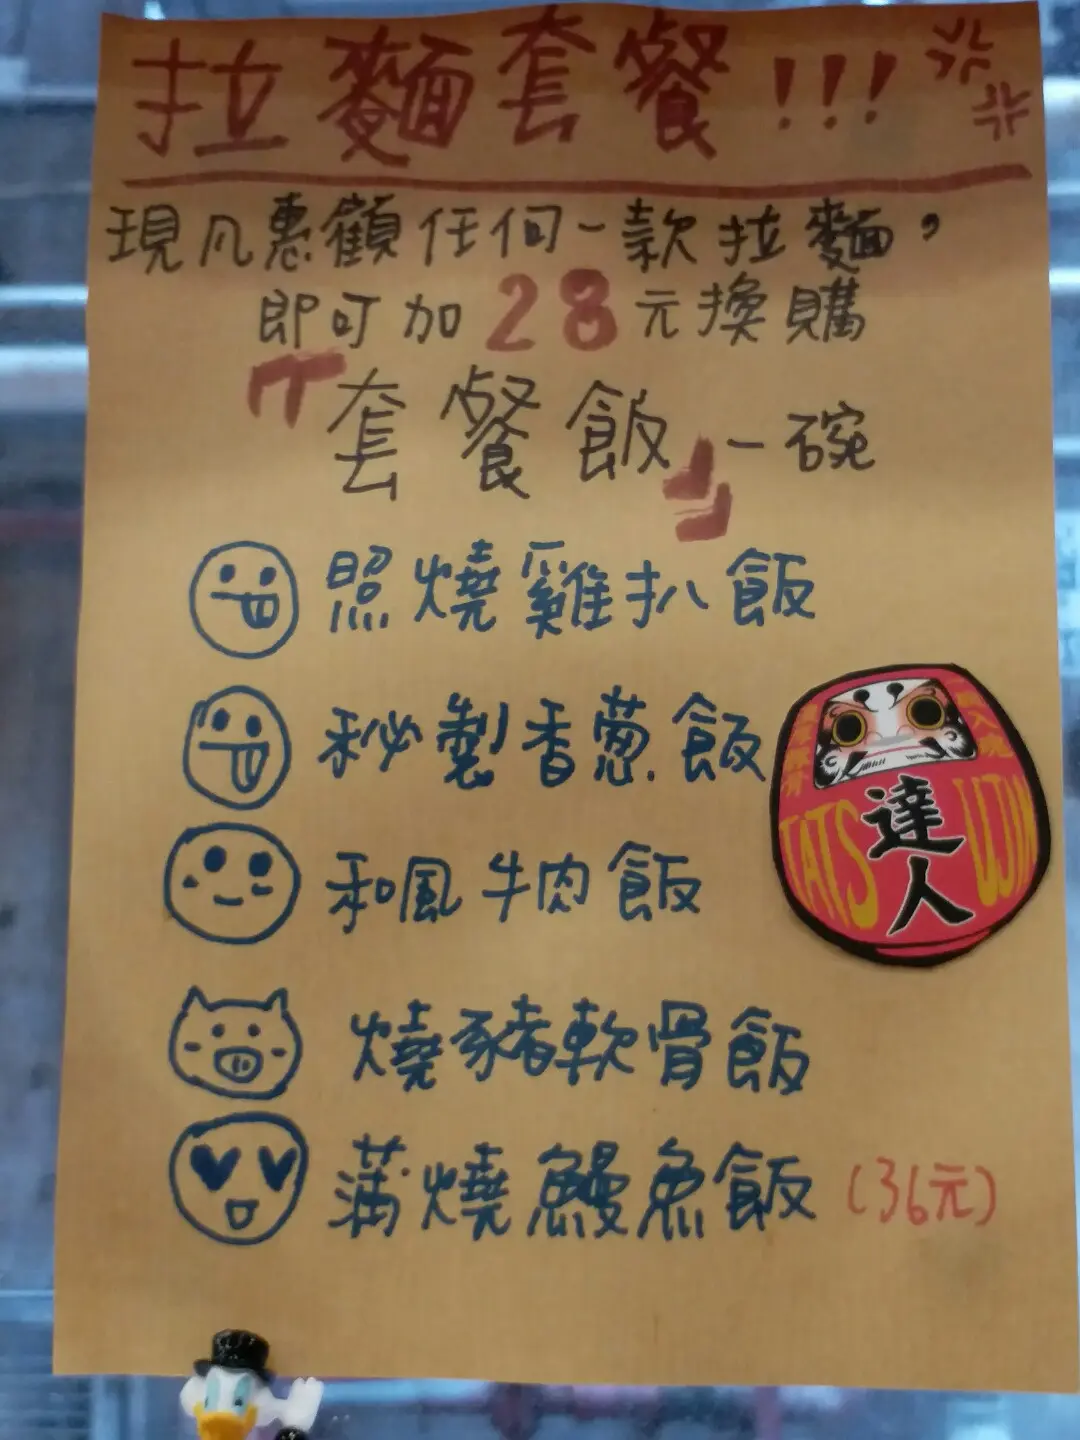 拉麵套餐!!!
現凡惠顧任何一款拉麵，
即可加28元換購
『套餐飯』一碗
照燒雞扒飯
秘製香葱飯
和風牛肉飯
燒豬軟骨飯
蒲燒鰻魚飯(36元)
達人
TATSUJIN